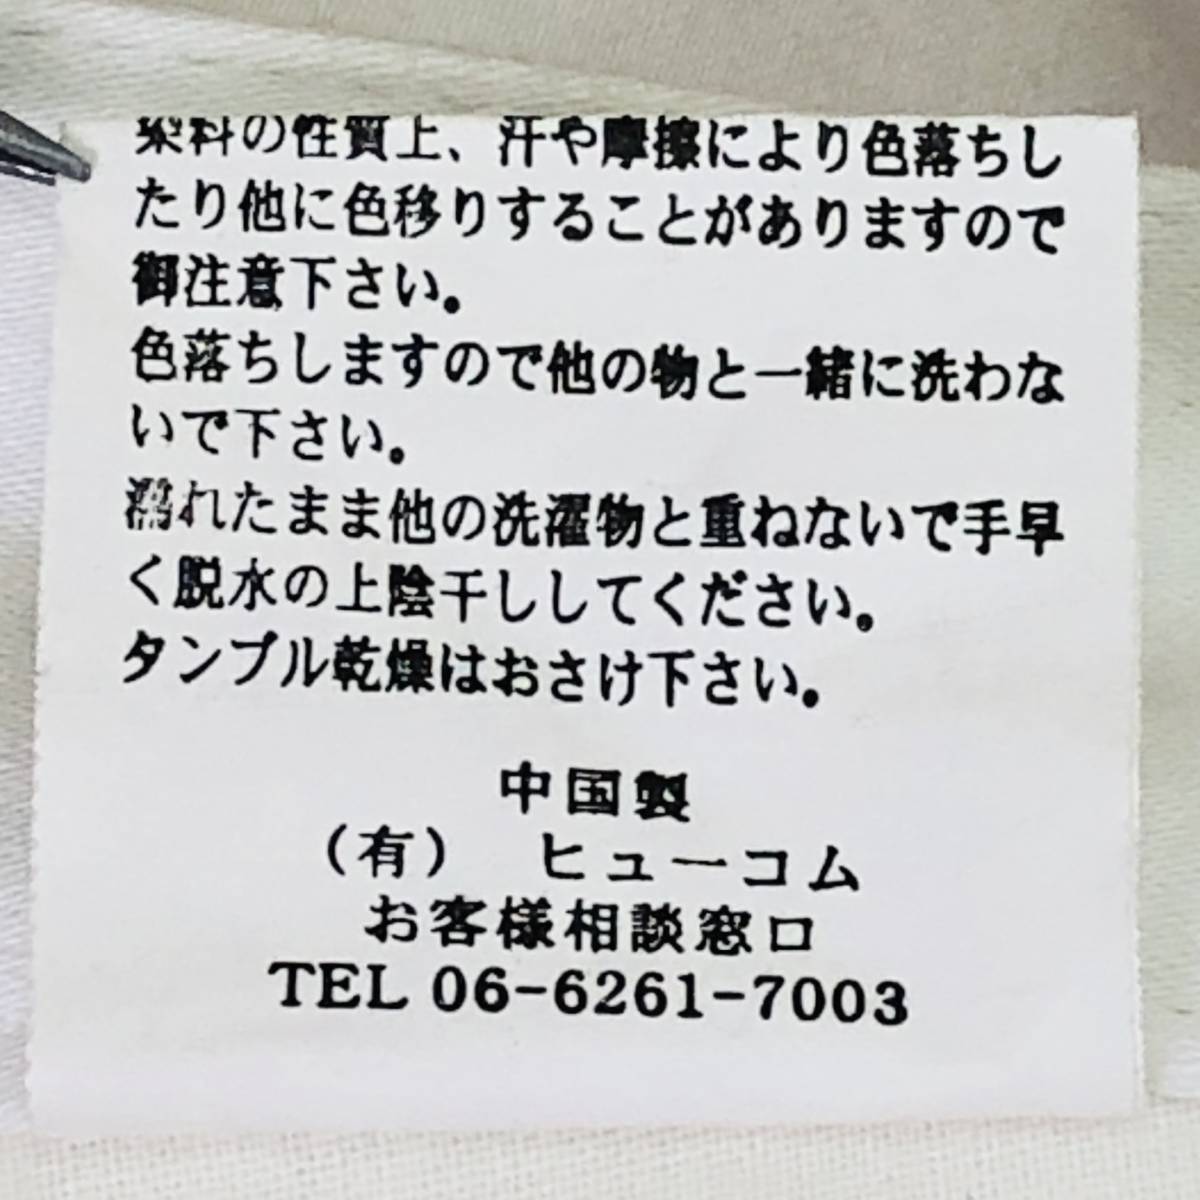 染料の性質上、汗や摩擦により色落ちし
たり他に色移りすることがありますので
御注意下さい。
色落ちしますので他の物と一緒に洗わな
いで下さい。
濡れたまま他の洗濯物と重ねないで手早
く脱水の上陰干ししてください。
タンブル乾燥はおさけ下さい。
中国製
(有) ヒューコム
お客様相談窓口
TEL 06-6261-7003